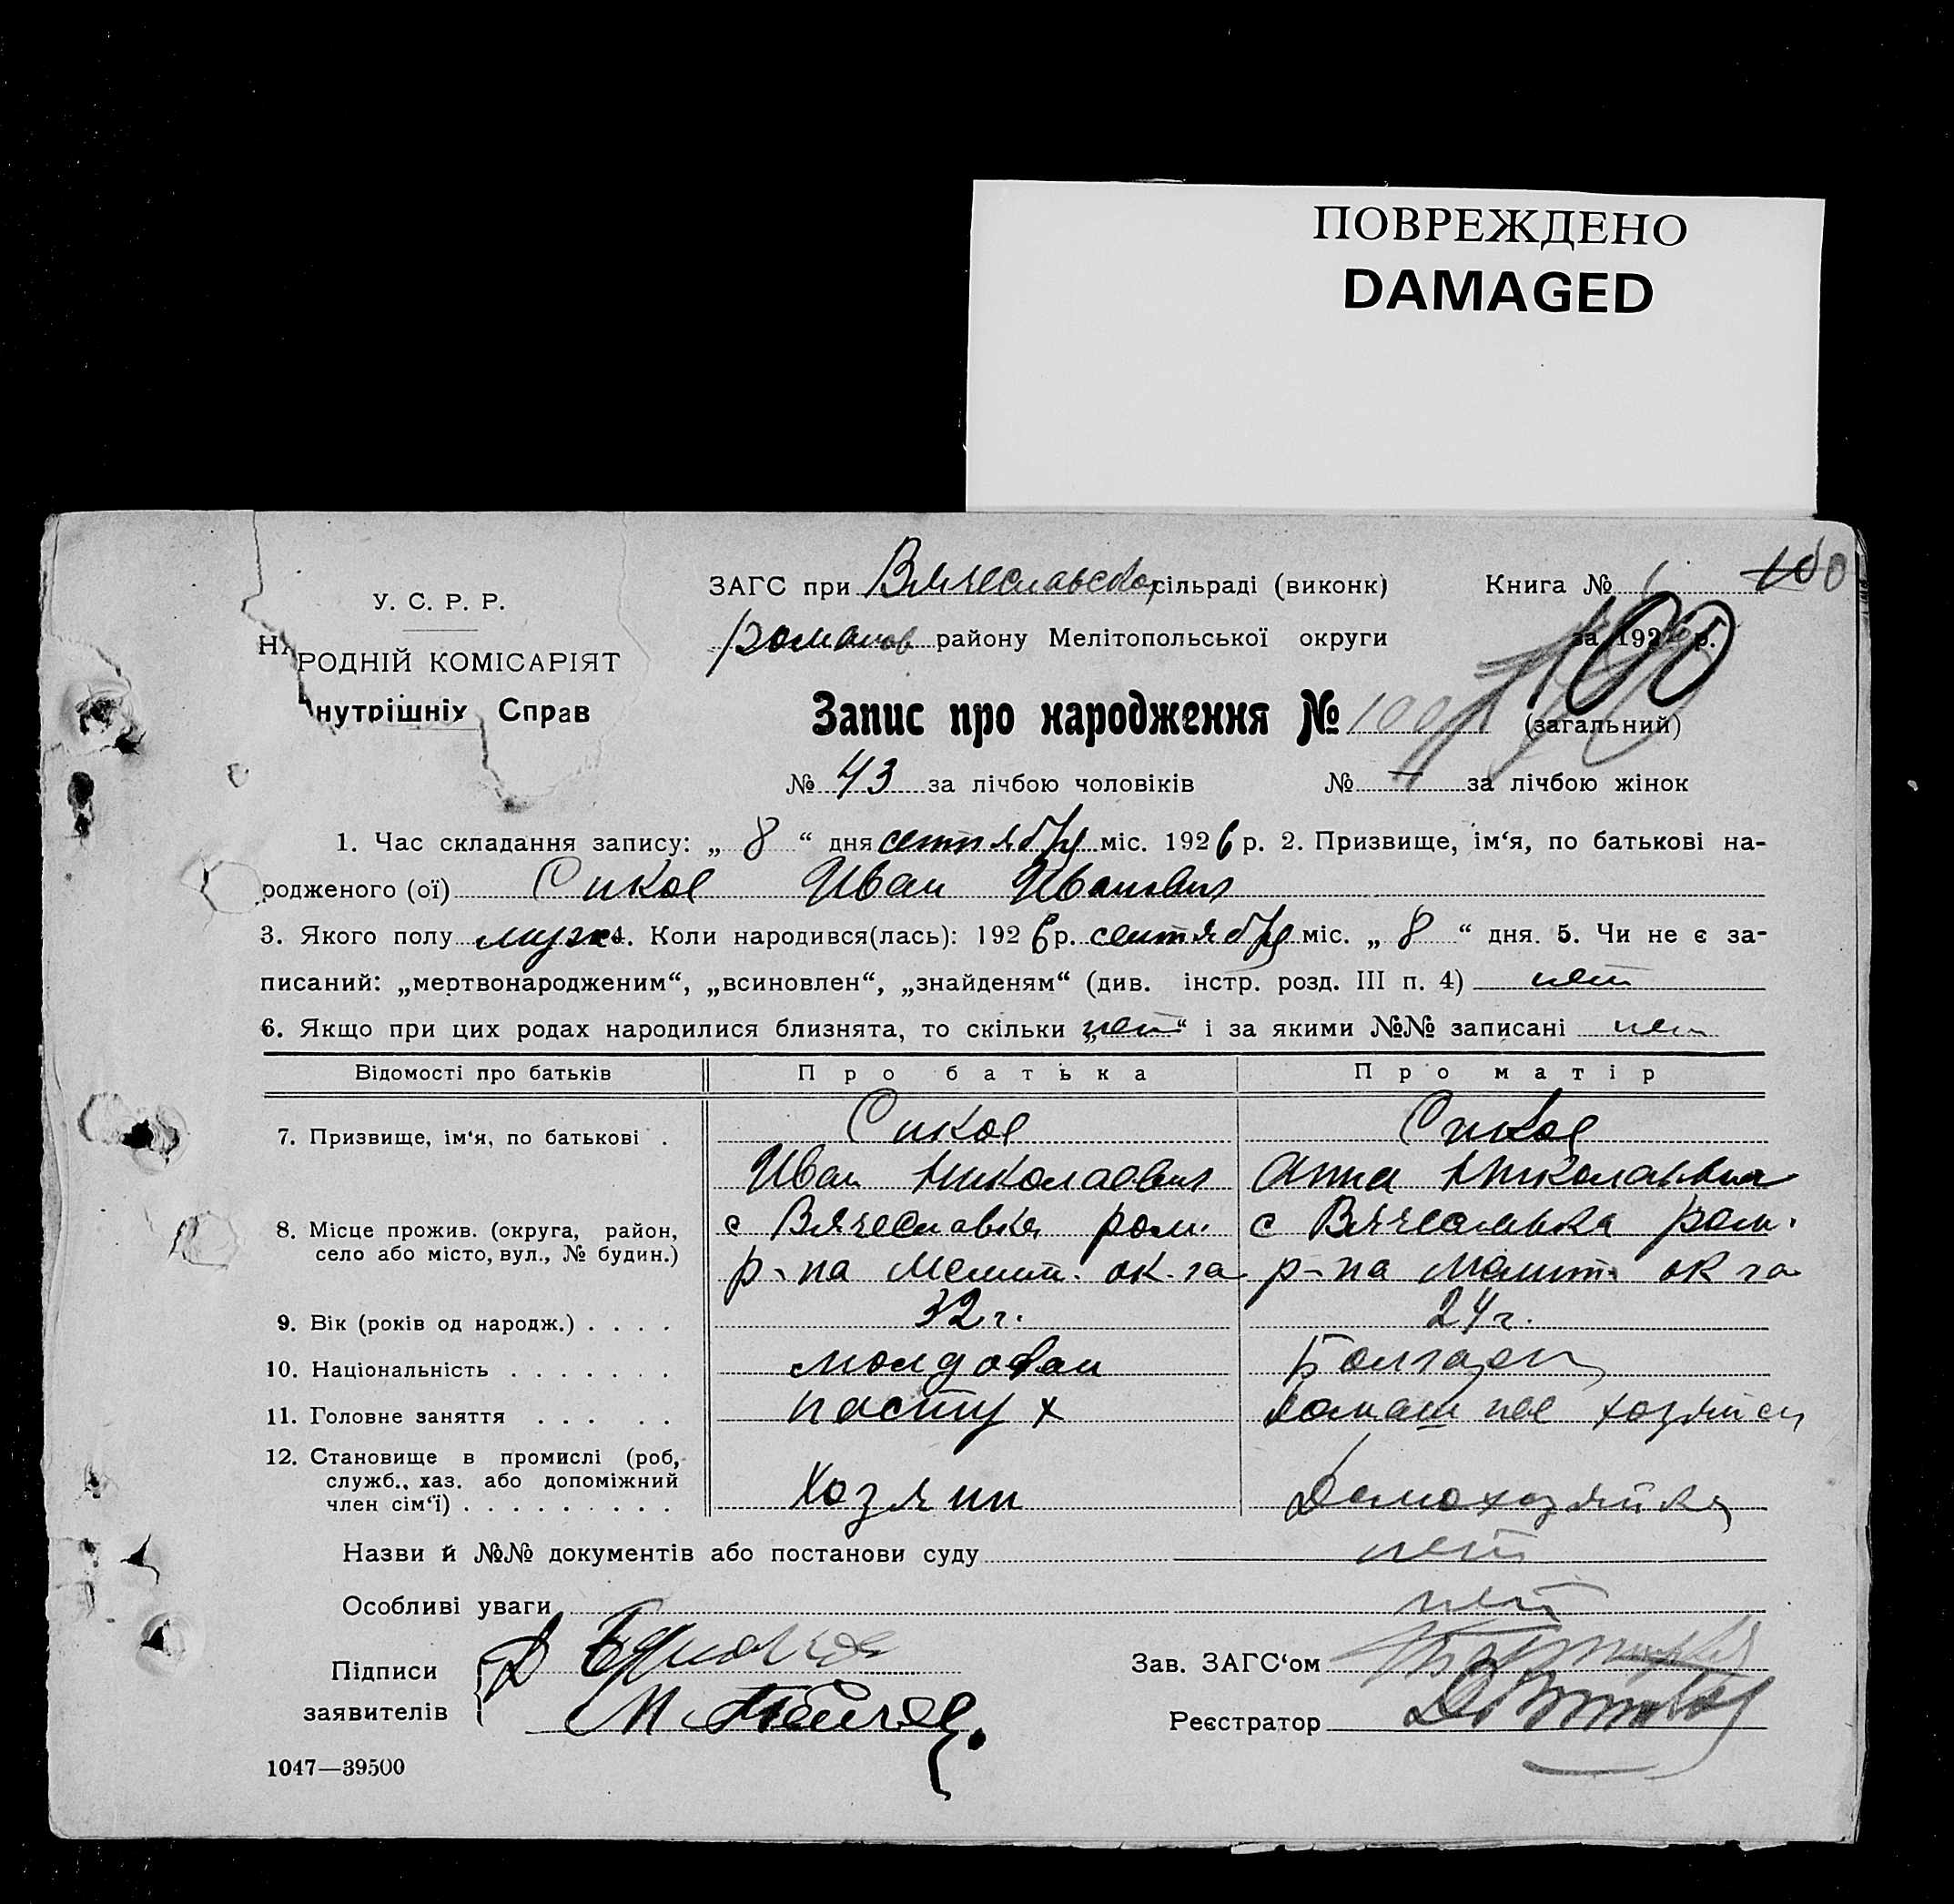 ПОВРЕЖДЕНО
DAMAGED
ЗАГС при Вячеславской сільраді (виконк) Книга № 1 100
У. С. Р. Р.
романов району Мелітопольської округи за 192 р. 100
НАРОДНІЙ КОМІСАРІЯТ
Внутрішніх Справ
Запис про народження № 100 (загальний)
№ 43 за лічбою чоловіків № — за лічбою жінок
1. Час складання запису: „ 8 “ дня сентября міс. 1926 р. 2. Призвище, ім‘я, по батькові на-
родженого (ої) Сикое Иван Иванович
3. Якого полу муж 4. Коли народився(лась): 1926 р. сентября міс. „ 8 “ дня. 5. Чи не є за-
писаний: „мертвонародженим“, „всиновлен“, „знайденям“ (див. інстр. розд. III п. 4) нет
6. Якщо при цих родах народилися близнята, то скільки „нет“ і за якими №№ записані нет
Відомості про батьків Про батька Про матір
7. Призвище, ім‘я, по батькові . Сикое Сикое
Иван Николаевич Анна Николаевна
8. Місце прожив. (округа, район, с Вячеславка ром. с Вячеславка ром.
село або місто, вул., № будин.) р-на Мелит. ок-га р-на Мелит. ок га
9. Вік (років од народж.) . . . . 32 г. 24 г.
10. Національність . . . . . . . молдован Болгарк
11. Головне заняття . . . . . пастух домашнее хозяйсн
12. Становище в промислі (роб,
служб., хаз. або допоміжний
член сім‘ї) . . . . . . . . . Хозяин Домохозяйка
Назви й №№ документів або постанови суду нет
Особливі уваги нет
Підписи
заявителів
Зав. ЗАГС‘ом
М
Реєстратор
1047—39500